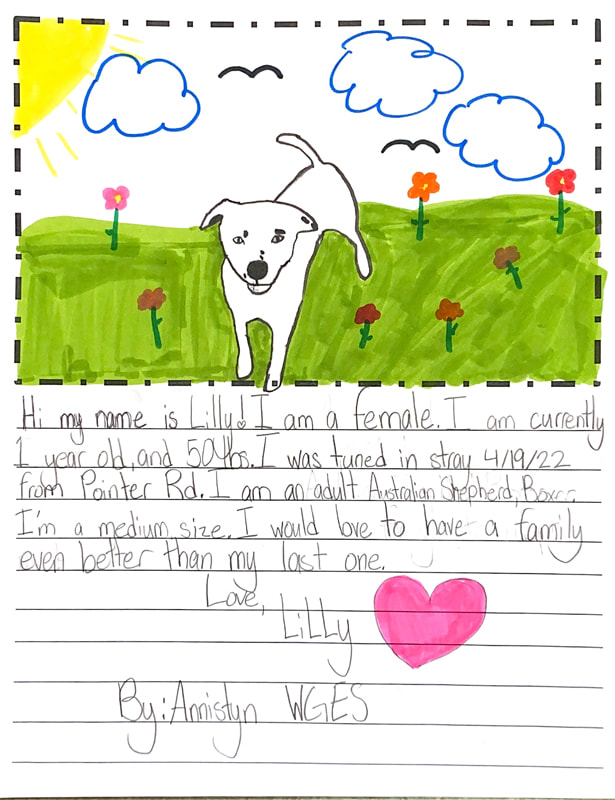 Hi my name is Lilly! I am a female. I am currently
1 year old, and 50 lbs. I was tuned in stray 4/19/22
from Pointer Rd. I am an adult Australian Shepherd, Boxer.
I'm a medium size. I would love to have a family
even better than my last one.
Love,
Lilly
By: Annistyn WGES